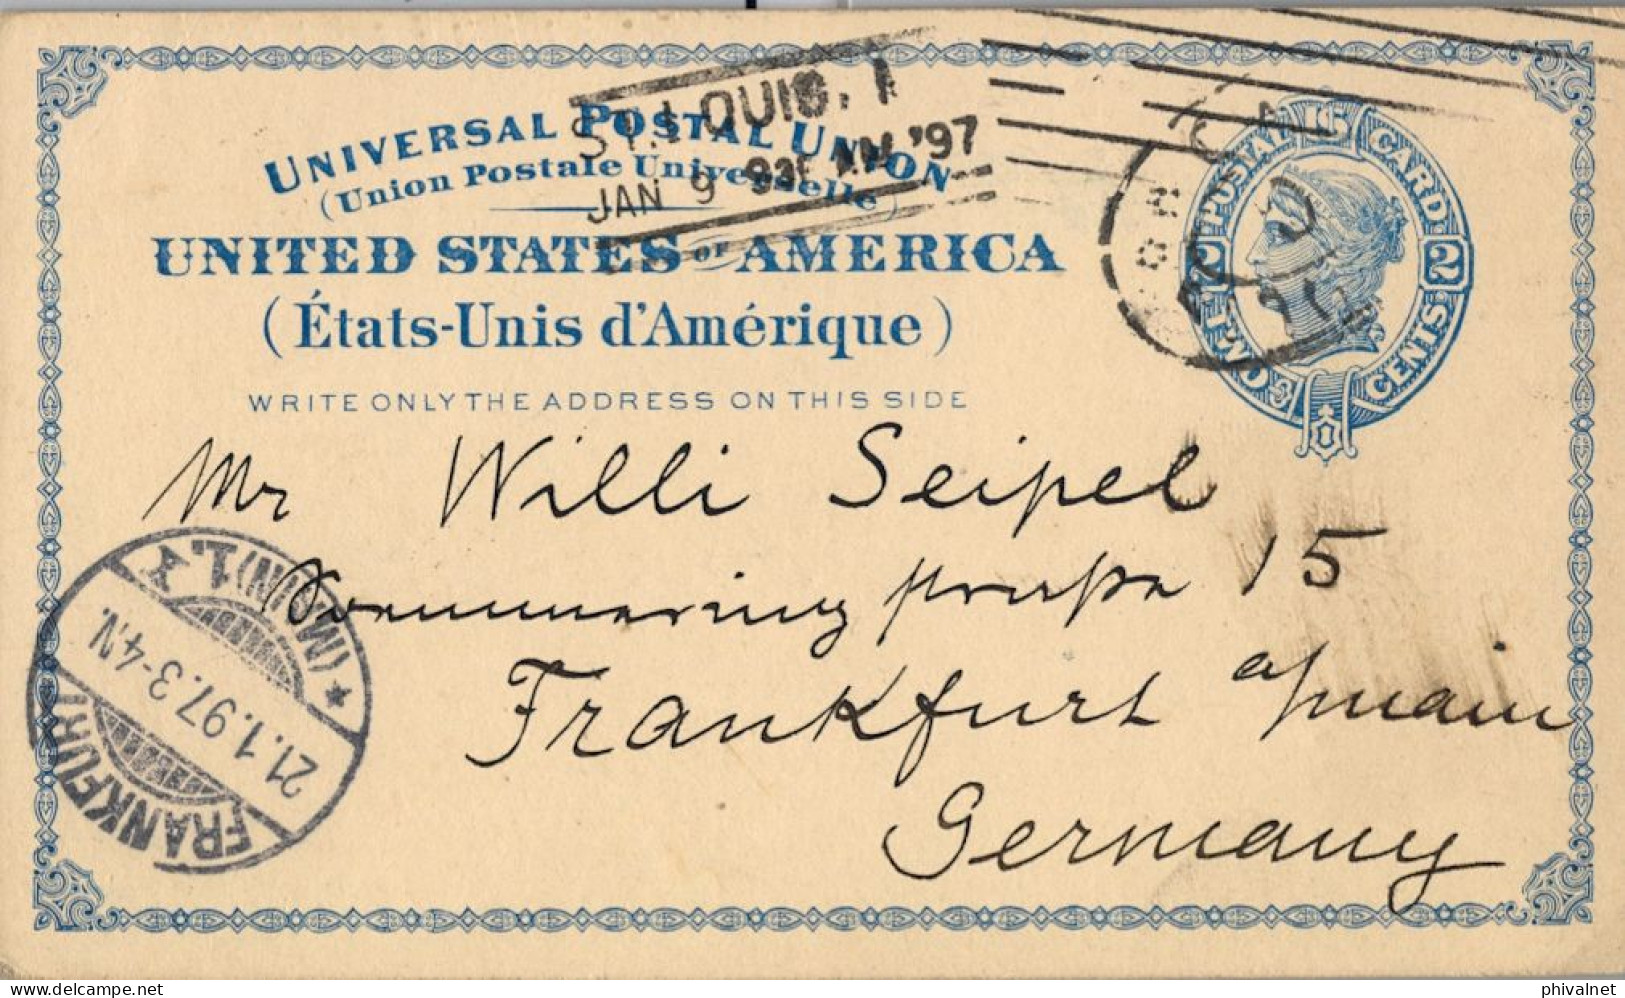 UNIVERSAL POSTAL UNION
(Union Postale Universelle)
UNITED STATES OF AMERICA
(États-Unis d'Amérique)
WRITE ONLY THE ADDRESS ON THIS SIDE
ST. LOUIS,
JAN 9 AM '97
POSTAL CARD
2 2
TWO CENTS
Mr Willi Seipel
15
Frankfurt a/main
Germany
FRANKFURT (MAIN) 1.
21.1.97.3-4.N.
phivalnet